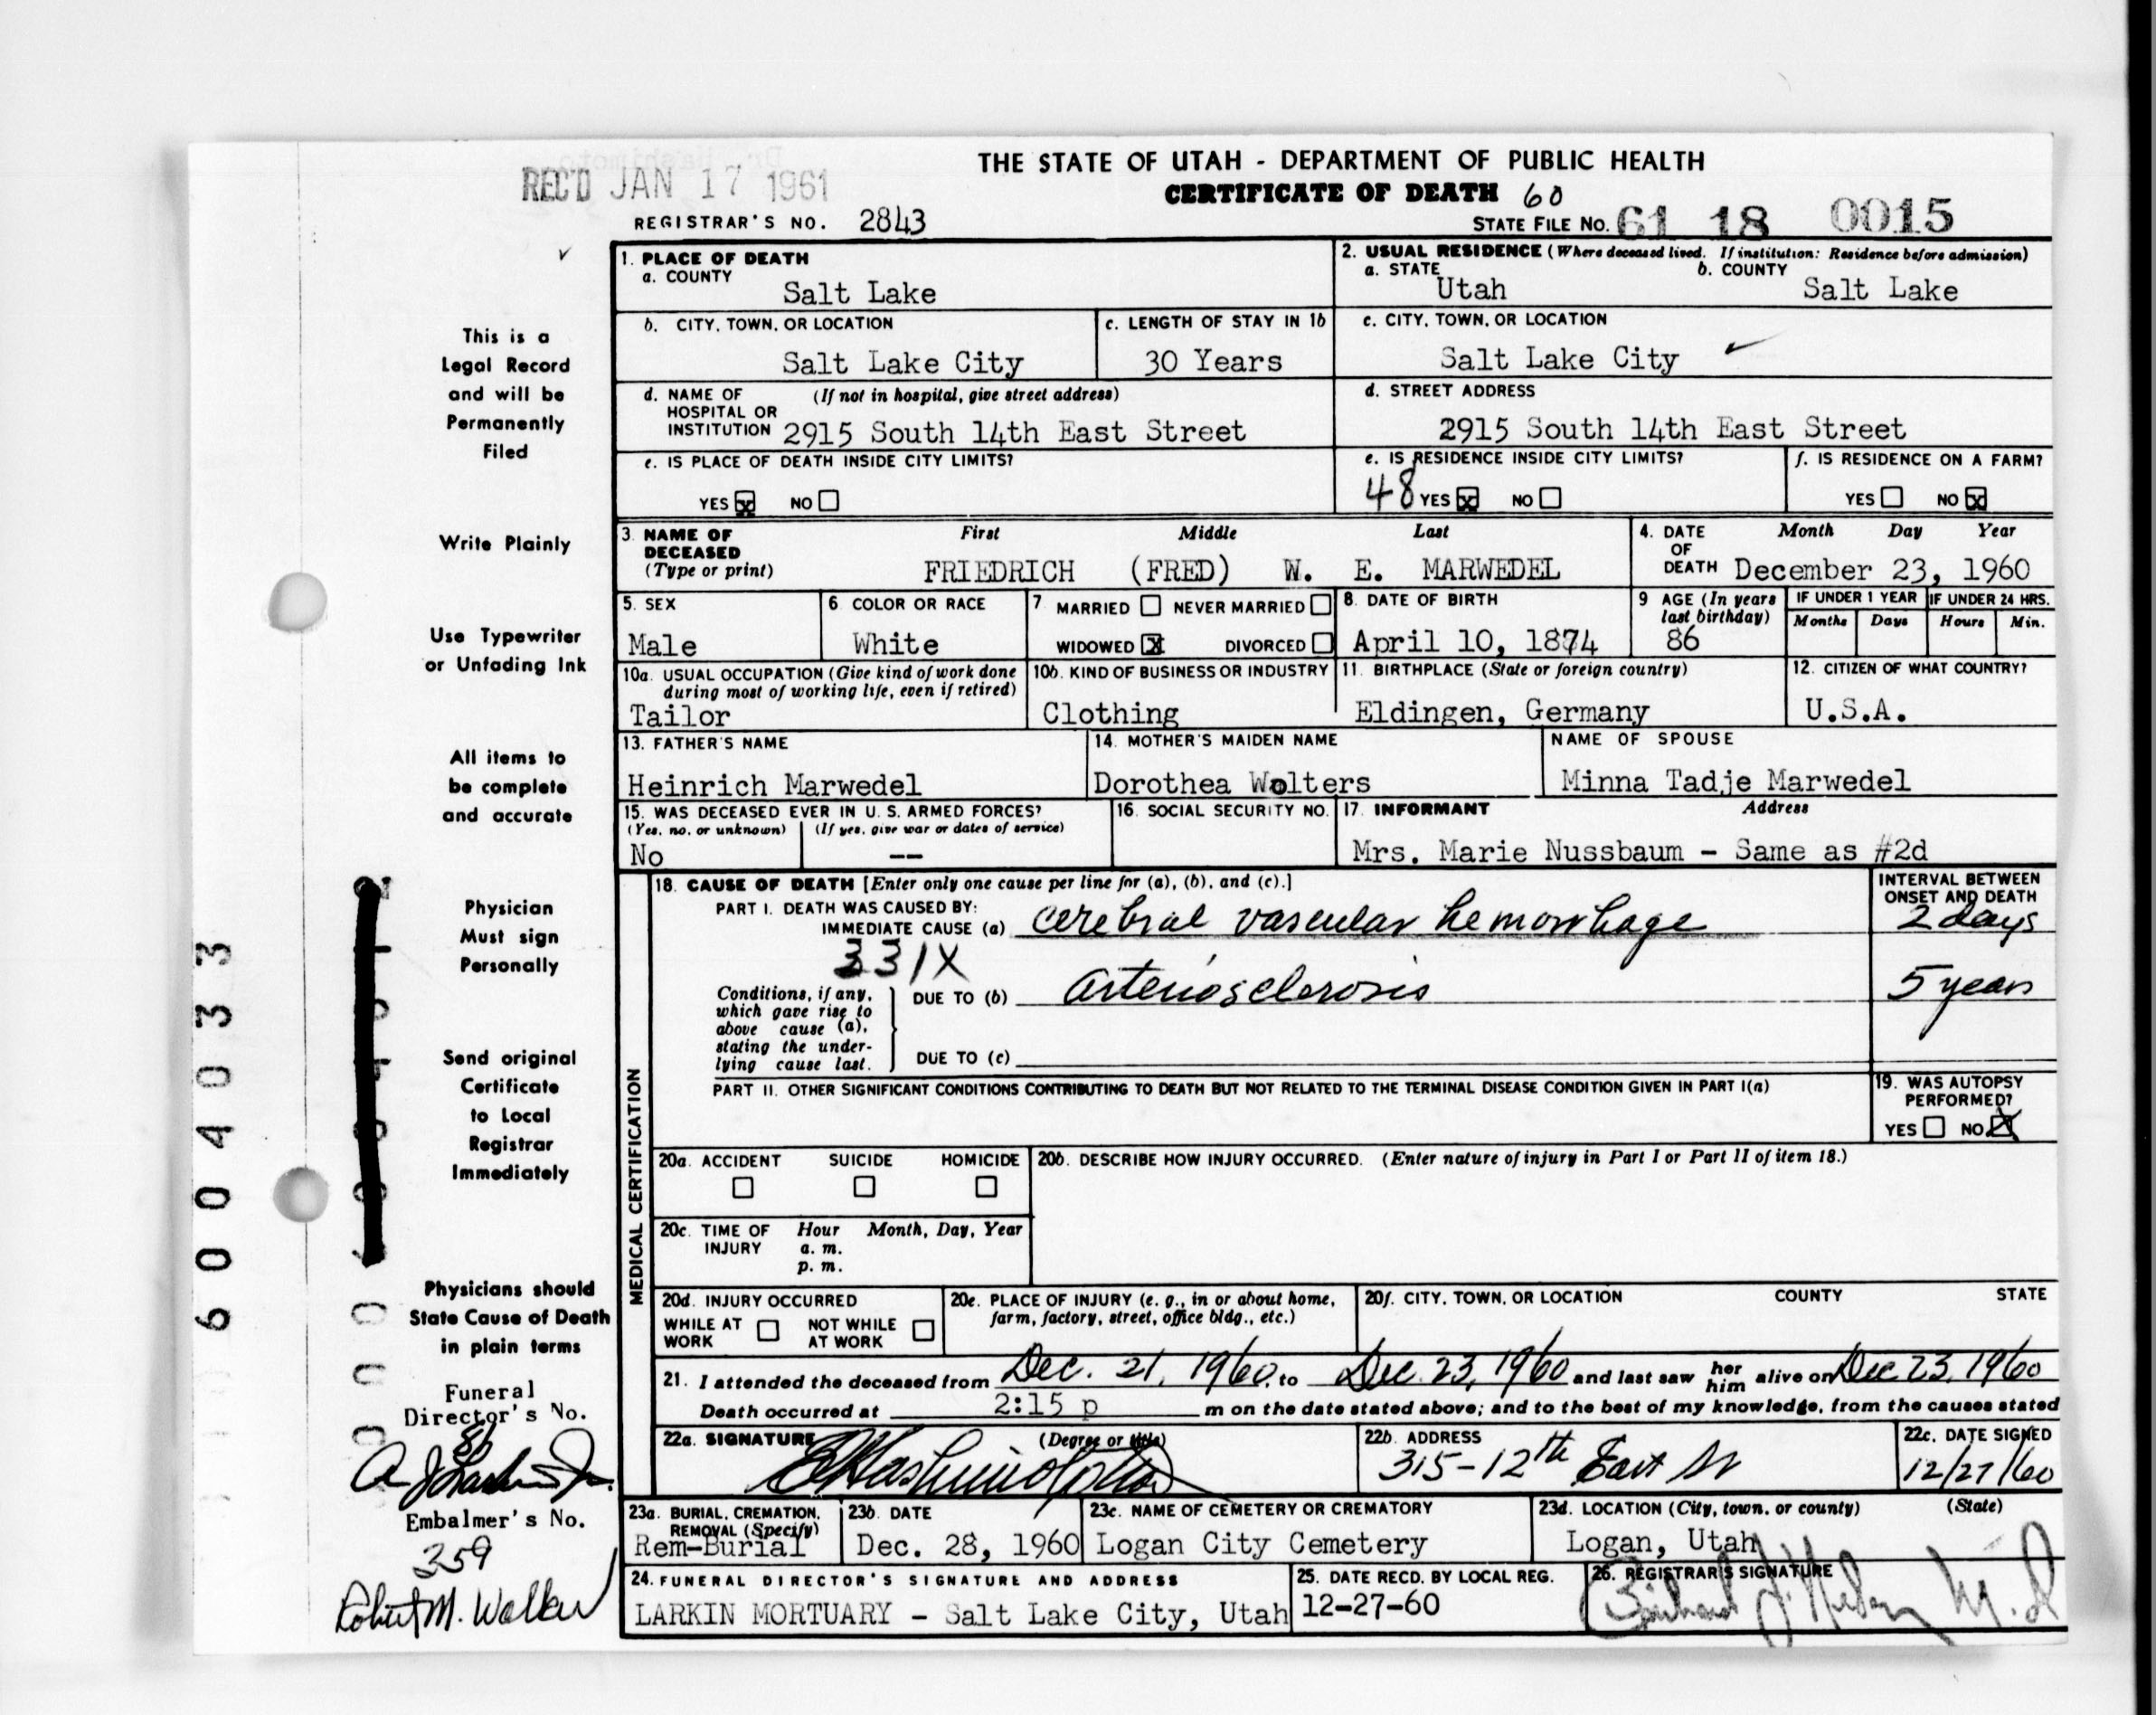 REC'D JAN 17 1961
THE STATE OF UTAH - DEPARTMENT OF PUBLIC HEALTH
CERTIFICATE OF DEATH 60
REGISTRAR'S NO. 2843
STATE FILE NO. 61 18 0015
This is a
Legal Record
and will be
Permanently
Filed
Write Plainly
Use Typewriter
or Unfading Ink
All items to
be complete
and accurate
Physician
Must sign
Personally
Send original
Certificate
to Local
Registrar
Immediately
Physicians should
State Cause of Death
in plain terms
Funeral
Director's No.
86
Embalmer's No.
359
Robert M. Walker
6004033
1. PLACE OF DEATH
a. COUNTY
Salt Lake
2. USUAL RESIDENCE (Where deceased lived. If institution: Residence before admission)
a. STATE b. COUNTY
Utah Salt Lake
b. CITY, TOWN, OR LOCATION
Salt Lake City
c. LENGTH OF STAY IN 1b
30 Years
c. CITY, TOWN, OR LOCATION
Salt Lake City ✓
d. NAME OF (If not in hospital, give street address)
HOSPITAL OR
INSTITUTION 2915 South 14th East Street
d. STREET ADDRESS
2915 South 14th East Street
e. IS PLACE OF DEATH INSIDE CITY LIMITS?
YES ☒ NO ☐
e. IS RESIDENCE INSIDE CITY LIMITS?
48 YES ☒ NO ☐
f. IS RESIDENCE ON A FARM?
YES ☐ NO ☒
3. NAME OF First Middle Last
DECEASED
(Type or print) FRIEDRICH (FRED) W. E. MARWEDEL
4. DATE Month Day Year
OF
DEATH December 23, 1960
5. SEX
Male
6. COLOR OR RACE
White
7. MARRIED ☐ NEVER MARRIED ☐
WIDOWED ☒ DIVORCED ☐
8. DATE OF BIRTH
April 10, 1874
9 AGE (In years
last birthday)
86
IF UNDER 1 YEAR IF UNDER 24 HRS.
Months Days Hours Min.
10a. USUAL OCCUPATION (Give kind of work done
during most of working life, even if retired)
Tailor
10b. KIND OF BUSINESS OR INDUSTRY
Clothing
11. BIRTHPLACE (State or foreign country)
Eldingen, Germany
12. CITIZEN OF WHAT COUNTRY?
U.S.A.
13. FATHER'S NAME
Heinrich Marwedel
14. MOTHER'S MAIDEN NAME
Dorothea Wolters
NAME OF SPOUSE
Minna Tadje Marwedel
15. WAS DECEASED EVER IN U. S. ARMED FORCES?
(Yes, no, or unknown) (If yes, give war or dates of service)
No --
16. SOCIAL SECURITY NO.
17. INFORMANT Address
Mrs. Marie Nussbaum - Same as #2d
MEDICAL CERTIFICATION
18. CAUSE OF DEATH [Enter only one cause per line for (a), (b), and (c).]
INTERVAL BETWEEN
ONSET AND DEATH
PART I. DEATH WAS CAUSED BY:
IMMEDIATE CAUSE (a) cerebral vascular hemorrhage 2 days
331X
Conditions, if any,
which gave rise to
above cause (a),
stating the under-
lying cause last.
DUE TO (b) arteriosclerosis 5 years
DUE TO (c)
PART II. OTHER SIGNIFICANT CONDITIONS CONTRIBUTING TO DEATH BUT NOT RELATED TO THE TERMINAL DISEASE CONDITION GIVEN IN PART I(a)
19. WAS AUTOPSY
PERFORMED?
YES ☐ NO ☒
20a. ACCIDENT SUICIDE HOMICIDE
☐ ☐ ☐
20b. DESCRIBE HOW INJURY OCCURRED. (Enter nature of injury in Part I or Part II of item 18.)
20c. TIME OF Hour Month, Day, Year
INJURY a. m.
p. m.
20d. INJURY OCCURRED
WHILE AT ☐ NOT WHILE ☐
WORK AT WORK
20e. PLACE OF INJURY (e. g., in or about home,
farm, factory, street, office bldg., etc.)
20f. CITY, TOWN, OR LOCATION COUNTY STATE
21. I attended the deceased from Dec. 21, 1960, to Dec. 23, 1960 and last saw her him alive on Dec 23, 1960
Death occurred at 2:15 p m on the date stated above; and to the best of my knowledge, from the causes stated
22a. SIGNATURE (Degree or title)
22b. ADDRESS
315-12th East St
22c. DATE SIGNED
12/27/60
23a. BURIAL, CREMATION,
REMOVAL (Specify)
Rem-Burial
23b. DATE
Dec. 28, 1960
23c. NAME OF CEMETERY OR CREMATORY
Logan City Cemetery
23d. LOCATION (City, town, or county) (State)
Logan, Utah
24. FUNERAL DIRECTOR'S SIGNATURE AND ADDRESS
LARKIN MORTUARY - Salt Lake City, Utah
25. DATE RECD. BY LOCAL REG.
12-27-60
26. REGISTRAR'S SIGNATURE
M.D